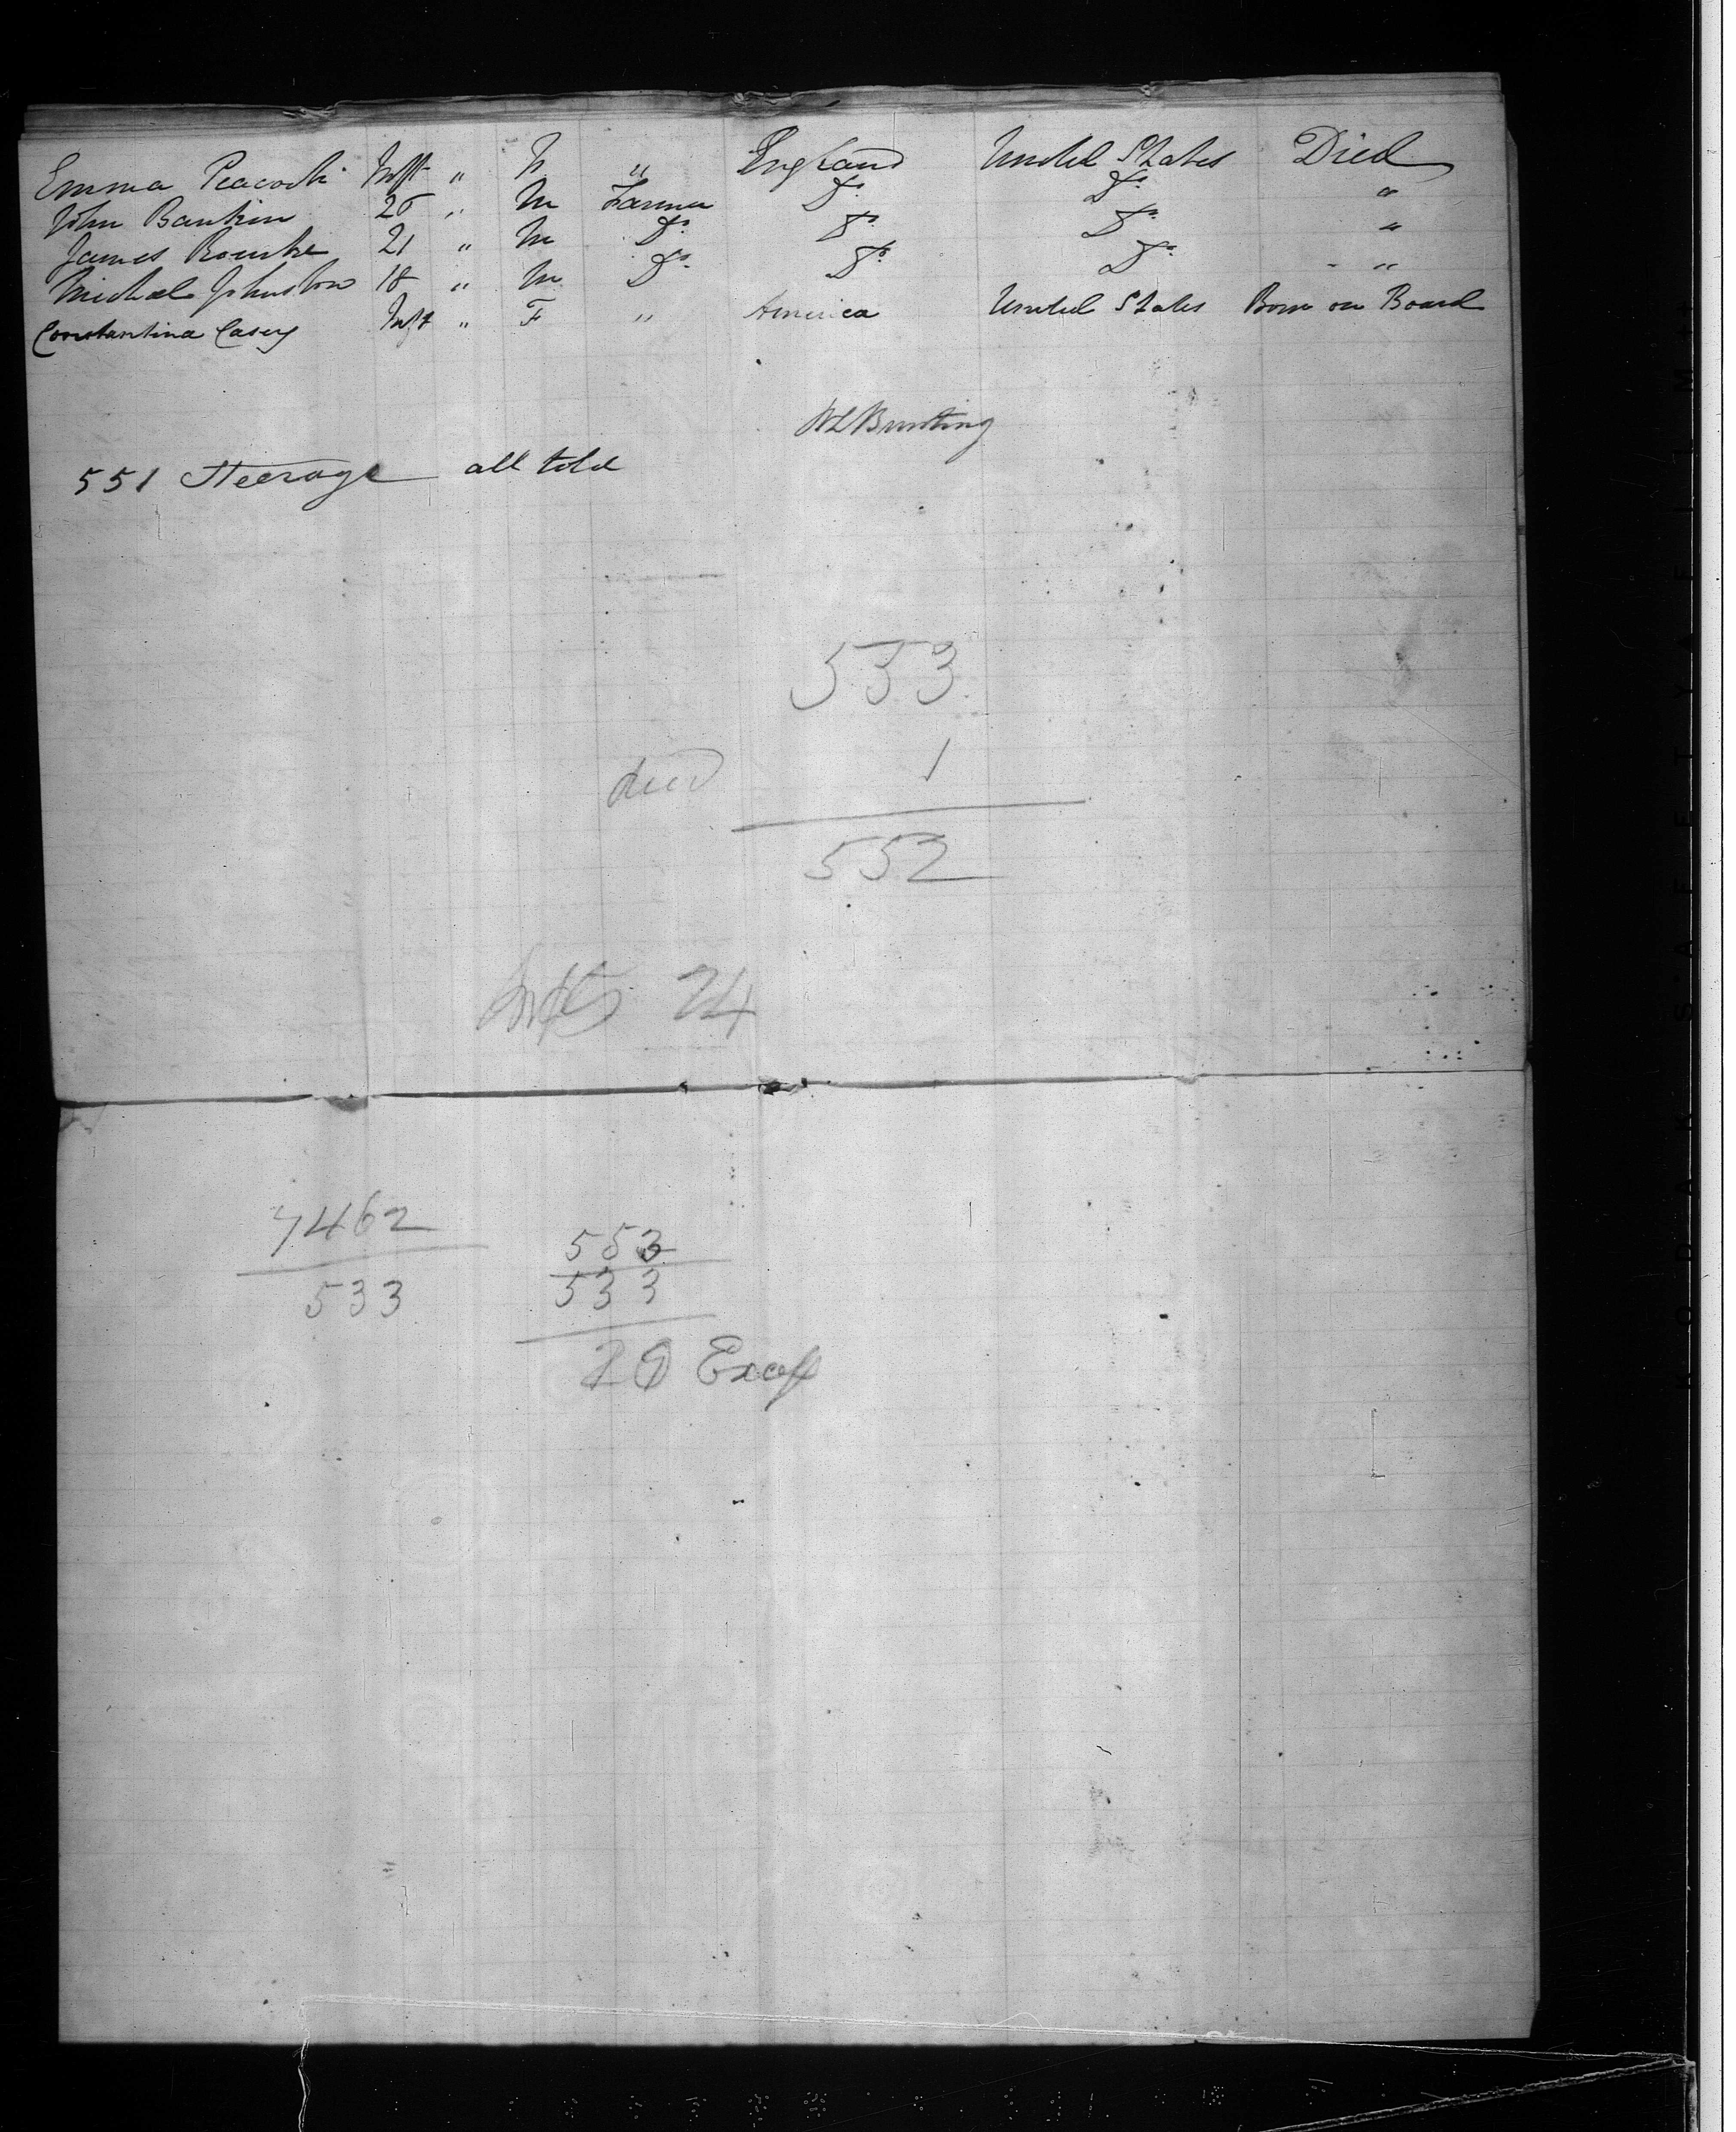 Emma Peacock Inft " " England United States Died
John Bankin 25 " M Farmer Do. Do. "
James Rourke 21 " M Do. Do. Do. "
Michael Johnston 18 " M Do. Do. Do. "
Constantina Casey Inft " F " America United States Born on Board
W L Bunting
551 Steerage all told
553
died 1
552
Infts 24
7462
533
553
533
20 Excess